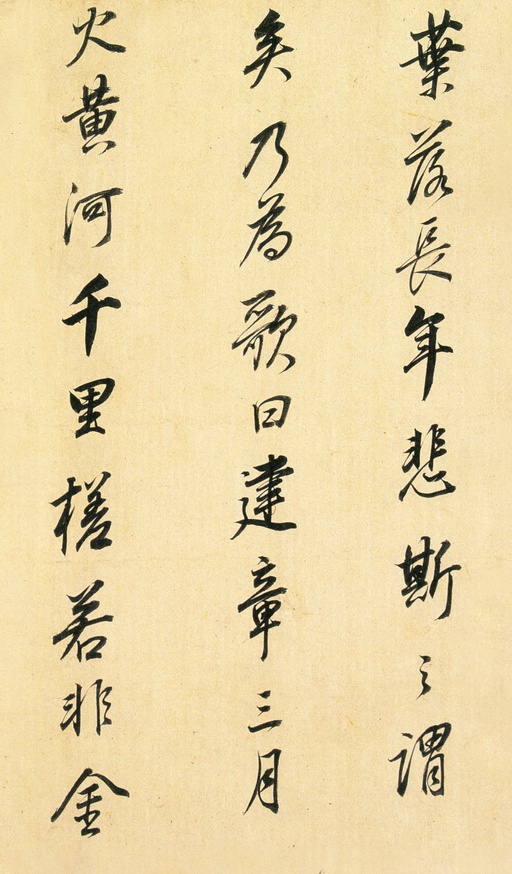 葉落長年悲斯之謂
矣乃為歌曰建章三月
火黃河千里槎若非金